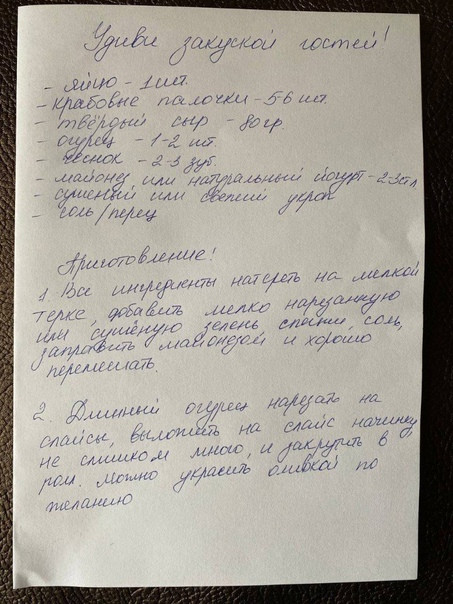 Удиви закуской гостей!
- яйцо - 1 шт.
- крабовые палочки - 5-6 шт.
- твёрдый сыр - 80гр.
- огурец - 1-2 шт.
- чеснок - 2-3 зуб.
- майонез или натуральный йогурт - 2-3 ст.л
- сушеный или свежий укроп
- соль/перец
Приготовление!
1. Все ингредиенты натереть на мелкой
терке, добавить мелко нарезанную
или сушёную зелень, соль,
заправить майонезом и хорошо
перемешать.
2. Длинный огурец нарезать на
слайсы, выложить на слайс начинку,
не слишком много, и закрутить в
рол. Можно украсить оливкой по
желанию